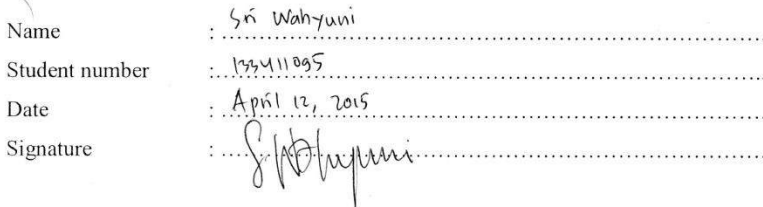 Name : Sri Wahyuni
Student number : 133411095
Date : April 12, 2015
Signature : S Wahyuni